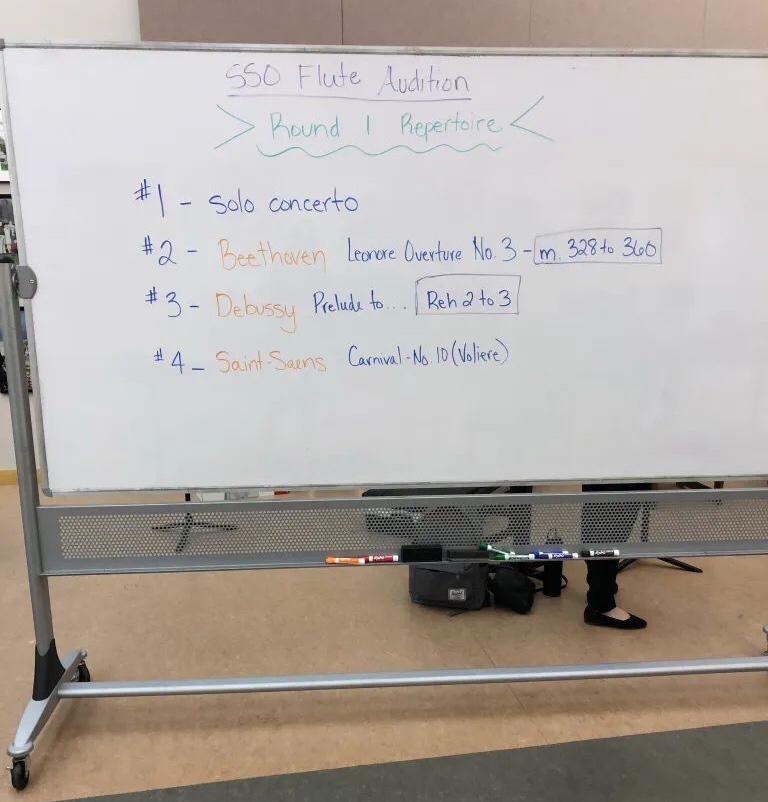 SSO Flute Audition
Round 1 Repertoire
#1 - Solo concerto
#2 - Beethoven Leonore Overture No. 3 - m. 328 to 360
#3 - Debussy Prelude to... Reh 2 to 3
#4 - Saint-Saens Carnival - No. 10 (Voliere)